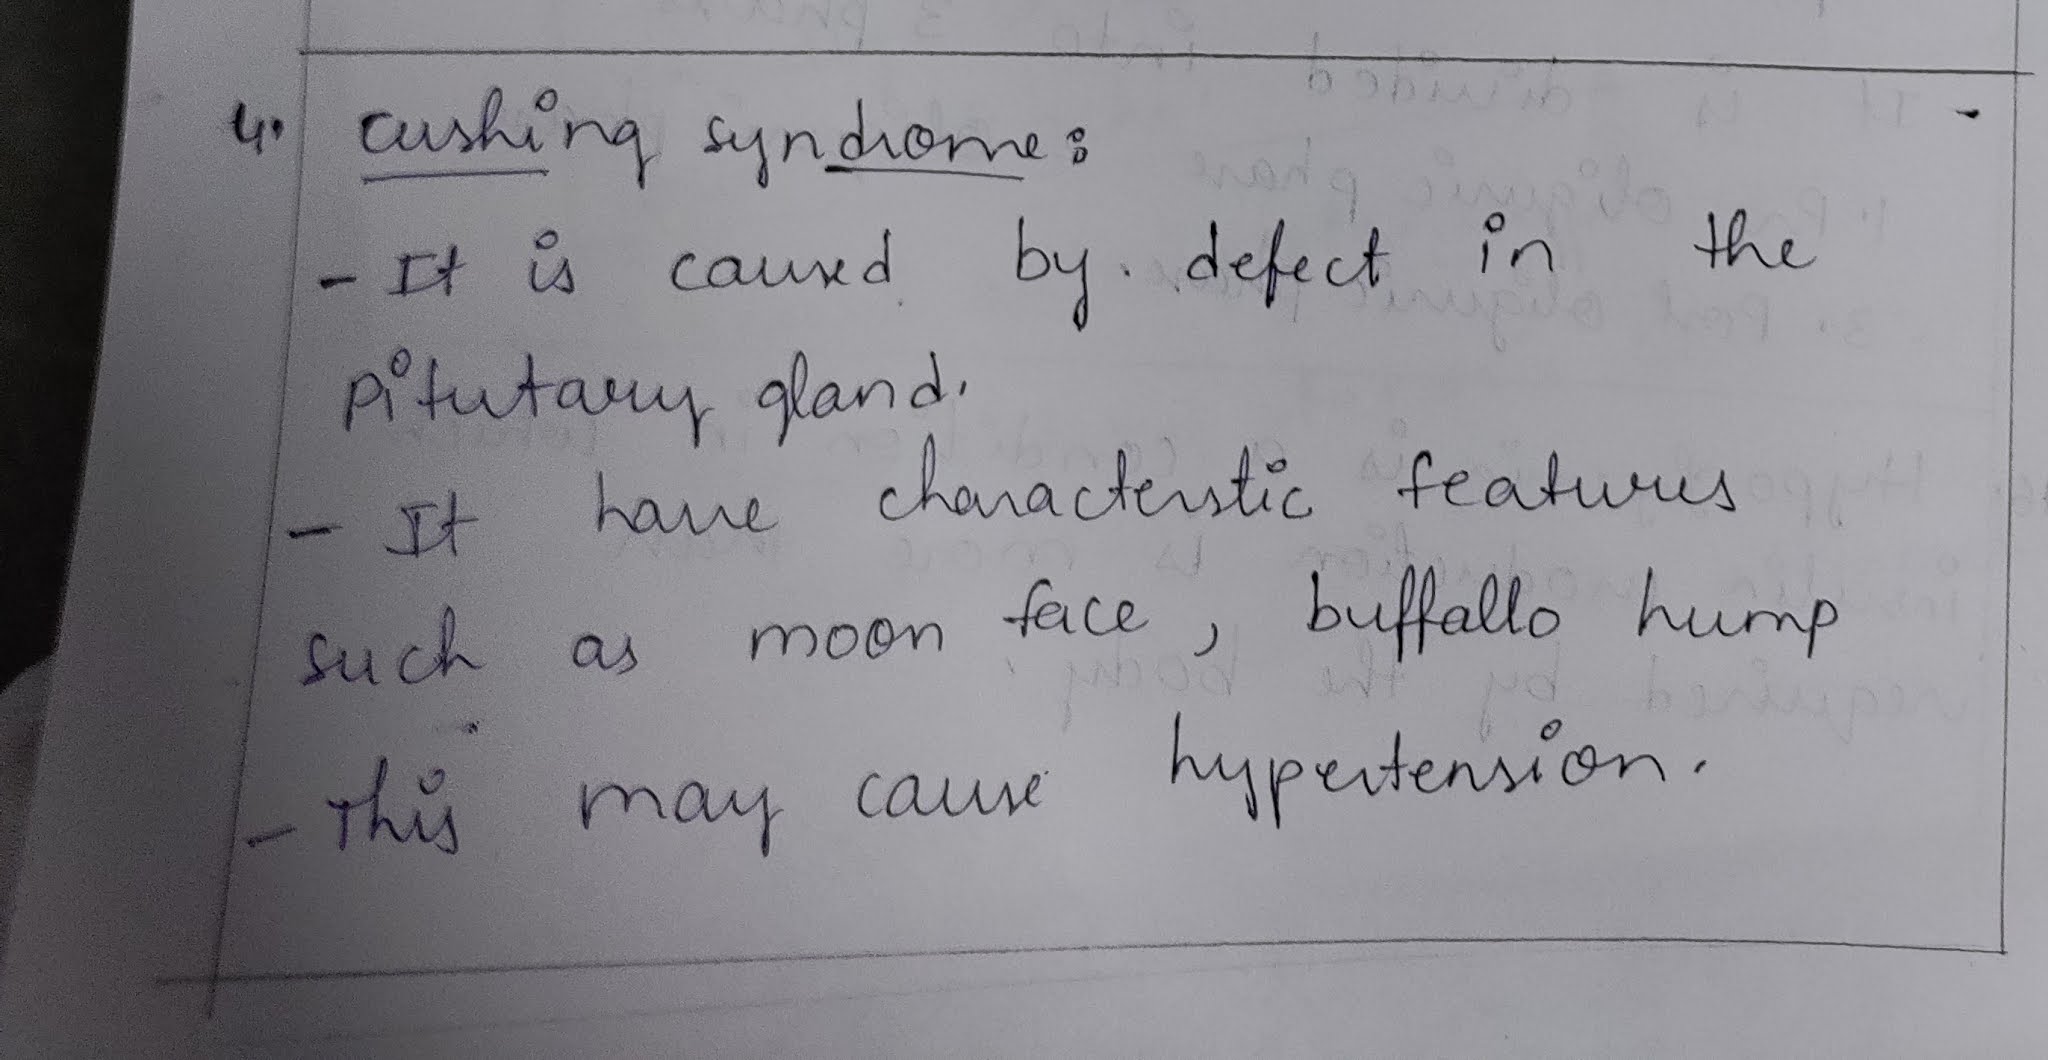 4. cushing syndrome:
- It is caused by defect in the
pitutary gland.
- It have characterstic features
such as moon face, buffallo hump
- This may cause hypertension.